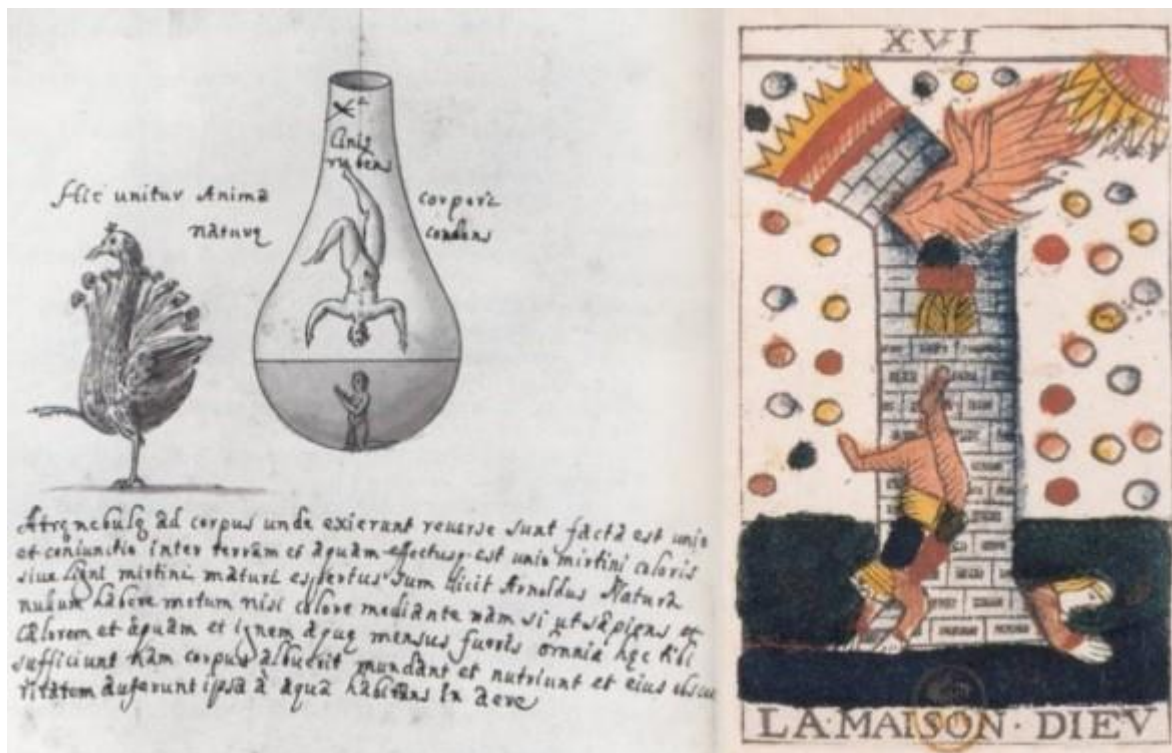 Hic unitur Anima
naturq
Cinis
rubens
corpori
condens
Atrq nebulq ad corpus unde exierant reverse sunt facta est unio
et coniunctio inter terram et aquam effectusq est unio mirtini coloris
sive ligni mirtini maturi expertus sum dicit Arnoldus Natura
nulum habere motum nisi calore mediante nam si ut sapiens et
Calorem et aquam et ignem aquq mensus fueris omnia hqc tibi
sufficiunt nam corpus albuerit mundant et nutriunt et eius obscu
ritatem auferunt ipsa à aqua habitans in aere
XVI
LA·MAISON·DIEV